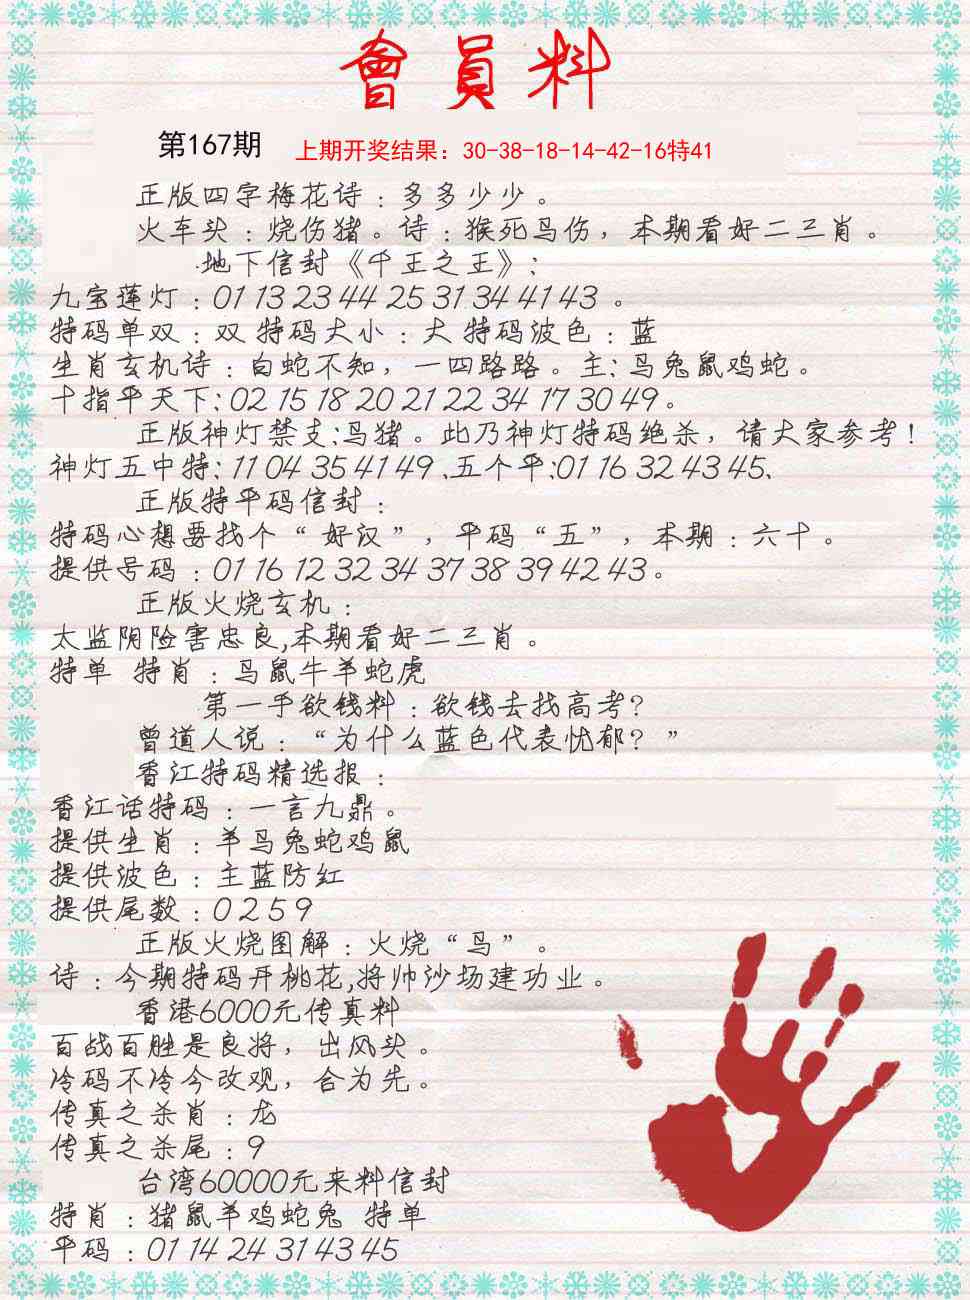 會員料
第167期 上期开奖结果：30-38-18-14-42-16特41
正版四字梅花诗：多多少少。
火车头：烧伤猪。诗：猴死马伤，本期看好二三肖。
地下信封《千王之王》：
九宝莲灯：01 13 23 44 25 31 34 41 43 。
特码单双：双 特码大小：大 特码波色：蓝
生肖玄机诗：白蛇不知，一四路路。主：马兔鼠鸡蛇。
十指平天下：02 15 18 20 21 22 34 17 30 49。
正版神灯禁支：马猪。此乃神灯特码绝杀，请大家参考！
神灯五中特：11 04 35 41 49 、五个平：01 16 32 43 45、
正版特平码信封：
特码心想要找个“好汉”，平码“五”，本期：六十。
提供号码：01 16 12 32 34 37 38 39 42 43。
正版火烧玄机：
太监阴险害忠良，本期看好二三肖。
特单 特肖：马鼠牛羊蛇虎
第一手欲钱料：欲钱去找高考？
曾道人说：“为什么蓝色代表忧郁？”
香江特码精选报：
香江话特码：一言九鼎。
提供生肖：羊马兔蛇鸡鼠
提供波色：主蓝防红
提供尾数：0 2 5 9
正版火烧图解：火烧“马”。
诗：今期特码开桃花，将帅沙场建功业。
香港6000元传真料
百战百胜是良将，出风头。
冷码不冷今改观，合为先。
传真之杀肖：龙
传真之杀尾：9
台湾60000元来料信封
特肖：猪鼠羊鸡蛇兔 特单
平码：01 14 24 31 43 45